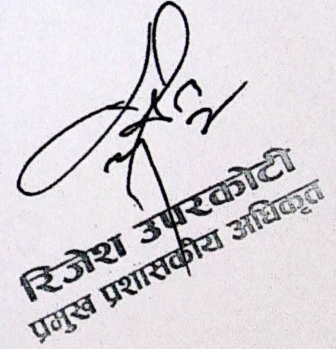 रिजेश उपरकोटी
प्रमुख प्रशासकीय अधिकृत